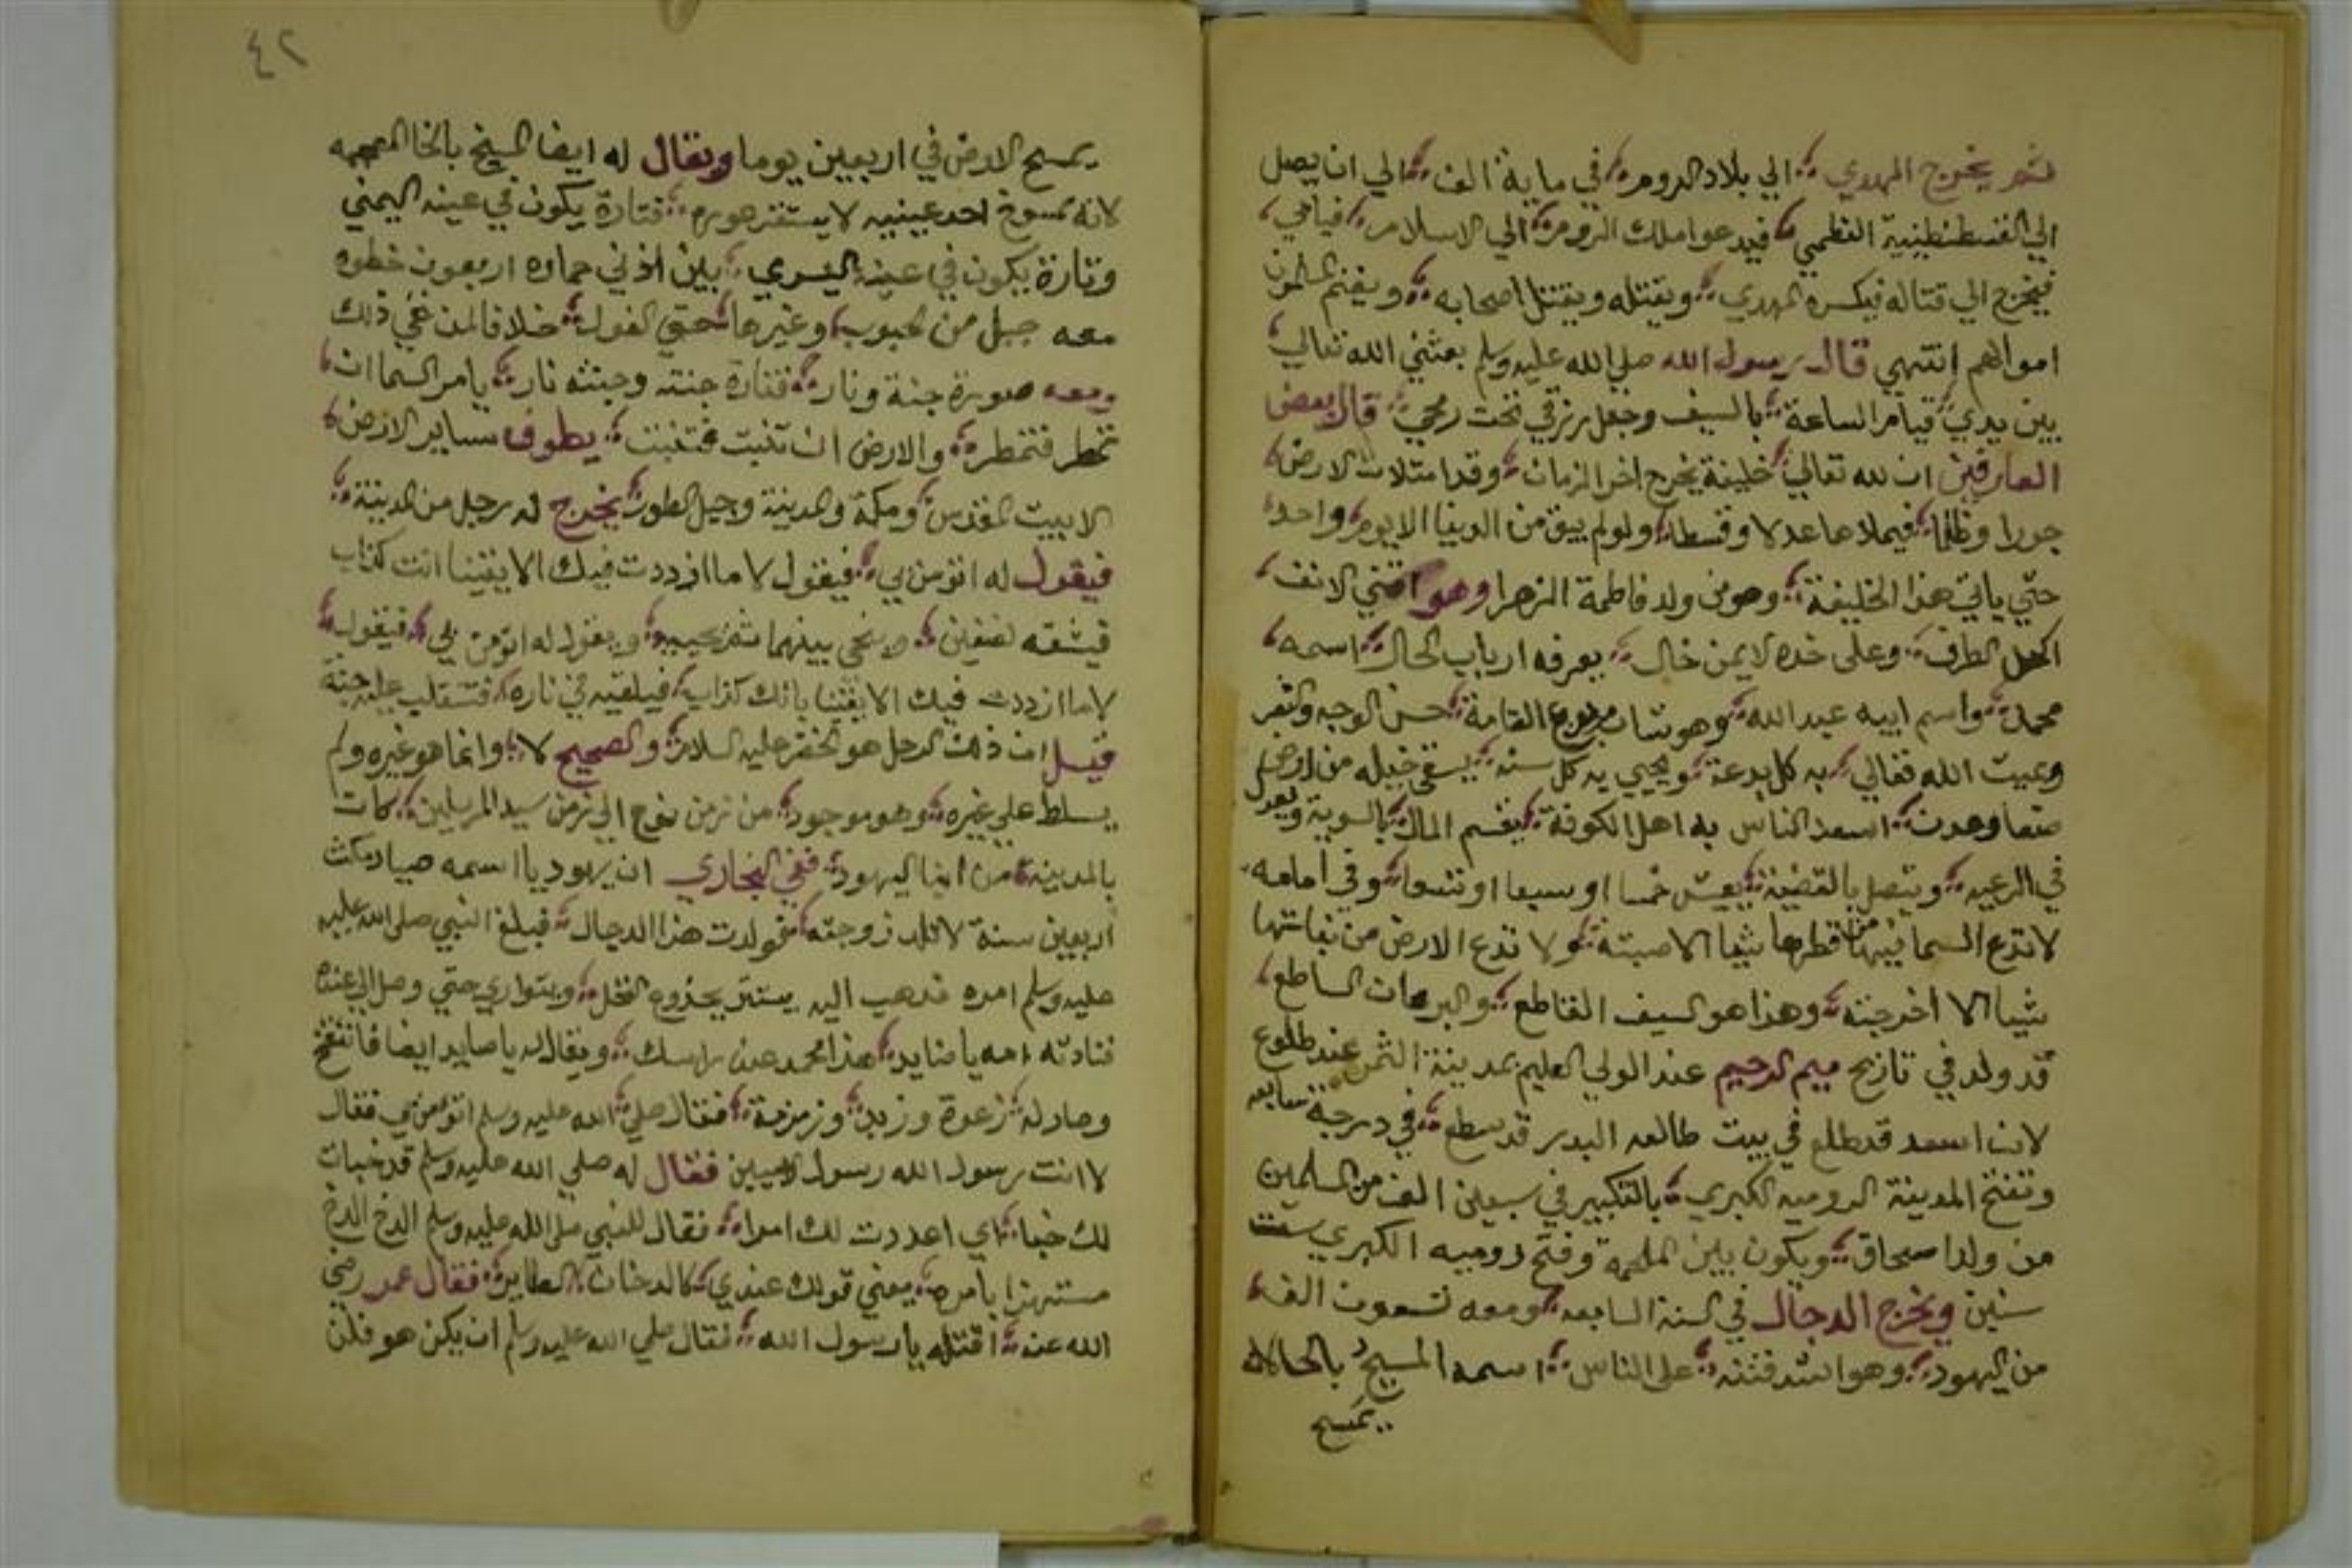 ثم يخرج المهدي الي بلاد الروم في ماية الف الي ان يصل
الي القسطنطينية العظمي فيدعوا ملك الروم الي الاسلام فيابي
فيخرج الي قتاله فيكسره المهدي ويقتله ويقتل اصحابه ويغنم المسلمون
اموالهم انتهي قال رسول الله صلي الله عليه وسلم بعثني الله تعالي
بين يدي قيام الساعة بالسيف وجعل رزقي تحت رمحي قال بعض
العارفين ان لله تعالي خليفة يخرج اخر الزمان وقد امتلات الارض
جورا وظلما فيملاها عدلا وقسطا ولو لم يبق من الدنيا الا يوم واحد
حتي ياتي هذا الخليفة وهو من ولد فاطمة الزهرا وهو اقني الانف
اكحل الطرف وعلي خده الايمن خال يعرفه ارباب الحال اسمه
محمد واسم ابيه عبد الله وهو شاب مربوع القامة حسن الوجه والشعر
ويميت الله تعالي به كل بدعة ويحيي به كل سنة يسقي خيله من ارض
صنعا وعدن اسعد الناس به اهل الكوفة يقسم المال بالسوية ويعدل
في الرعيه ويتصل بالقضية يعيش خمسا او سبعا او تسعا وفي امامه
لا تدع السما من قطرها شيا الا صبته ولا تدع الارض من نباتها
شيا الا اخرجته وهذا هو السيف القاطع والبرهان الساطع
قد ولد في تاريخ ميم الرحيم عند الولي العليم بمدينة عند طلوع
لان اسعد قد طلع في بيت طالعه البدر قد سطع في درجة سابعه
وتفتح المدينة الروميه الكبري بالتكبير في سبعين الف من المسلمين
من ولد اسحاق ويكون بين الملحمة وفتح روميه الكبري ست
سنين ويخرج الدجال في السنة السابعه ومعه تسعون الف
من اليهود وهو اشد فتنه علي الناس اسمه المسيح بالحا لانه
يمسح
٤٢
يمسح الارض في اربعين يوما ويقال له ايضا المسيخ بالخا المعجمه
لانه ممسوخ احد عينيه لا يستقر هوره فتارة يكون في عينه اليمني
وتارة يكون في عينه اليسري بين اذني حماره اربعون خطوه
معه جبل من الحبوب وغيرها حتي الفول خلافا لمن نفي ذلك
ومعه صورة جنة ونار فناره جنته وجنته نار يامر السما ان
تمطر فتمطر والارض ان تنبت فتنبت يطوف بساير الارض
الا بيت المقدس ومكة والمدينة وجبل الطور يخرج له رجل من المدينة
فيقول له اتؤمن بي فيقول لا ما ازددت فيك الا يقينا انت كذاب
فيشقه نصفين بينهما ثم يحييه ويقول له اتؤمن بي فيقول
لا ما ازددت فيك الا يقينا بانك كذاب فيلقيه في ناره فتنقلب عليه جنة
قيل ان ذلك الرجل هو الخضر عليه السلام والصحيح لا وانما هو غيره ولم
يسلط علي غيره وهو موجود من زمن نوح الي زمن سيد المرسلين كان
بالمدينة من ابنا اليهود ففي البخاري ان يهوديا اسمه صياد مكث
اربعين سنة لا تلد زوجته فولدت هذا الدجال فبلغ النبي صلي الله عليه
عليه وسلم امره فذهب اليه يستتر بجذوع النخل ويتواري حتي وصل الي عنده
فنادته امه يا صايد هذا محمد عند راسك ويقال له يا صايد ايضا فانتفخ
وصار له زعوة وزبد وزمزمة فقال صلي الله عليه وسلم اتؤمن بي فقال
لا انت رسول الله رسول الاميين فقال له صلي الله عليه وسلم قد خبات
لك خبا اي اعددت لك امرا فقال للنبي صلي الله عليه وسلم الدخ الدخ
مستهزا بامره يعني قولك عندي كالدخان الطاير فقال عمر رضي
الله عنه اقتله يا رسول الله فقال صلي الله عليه وسلم ان يكن هو فلن